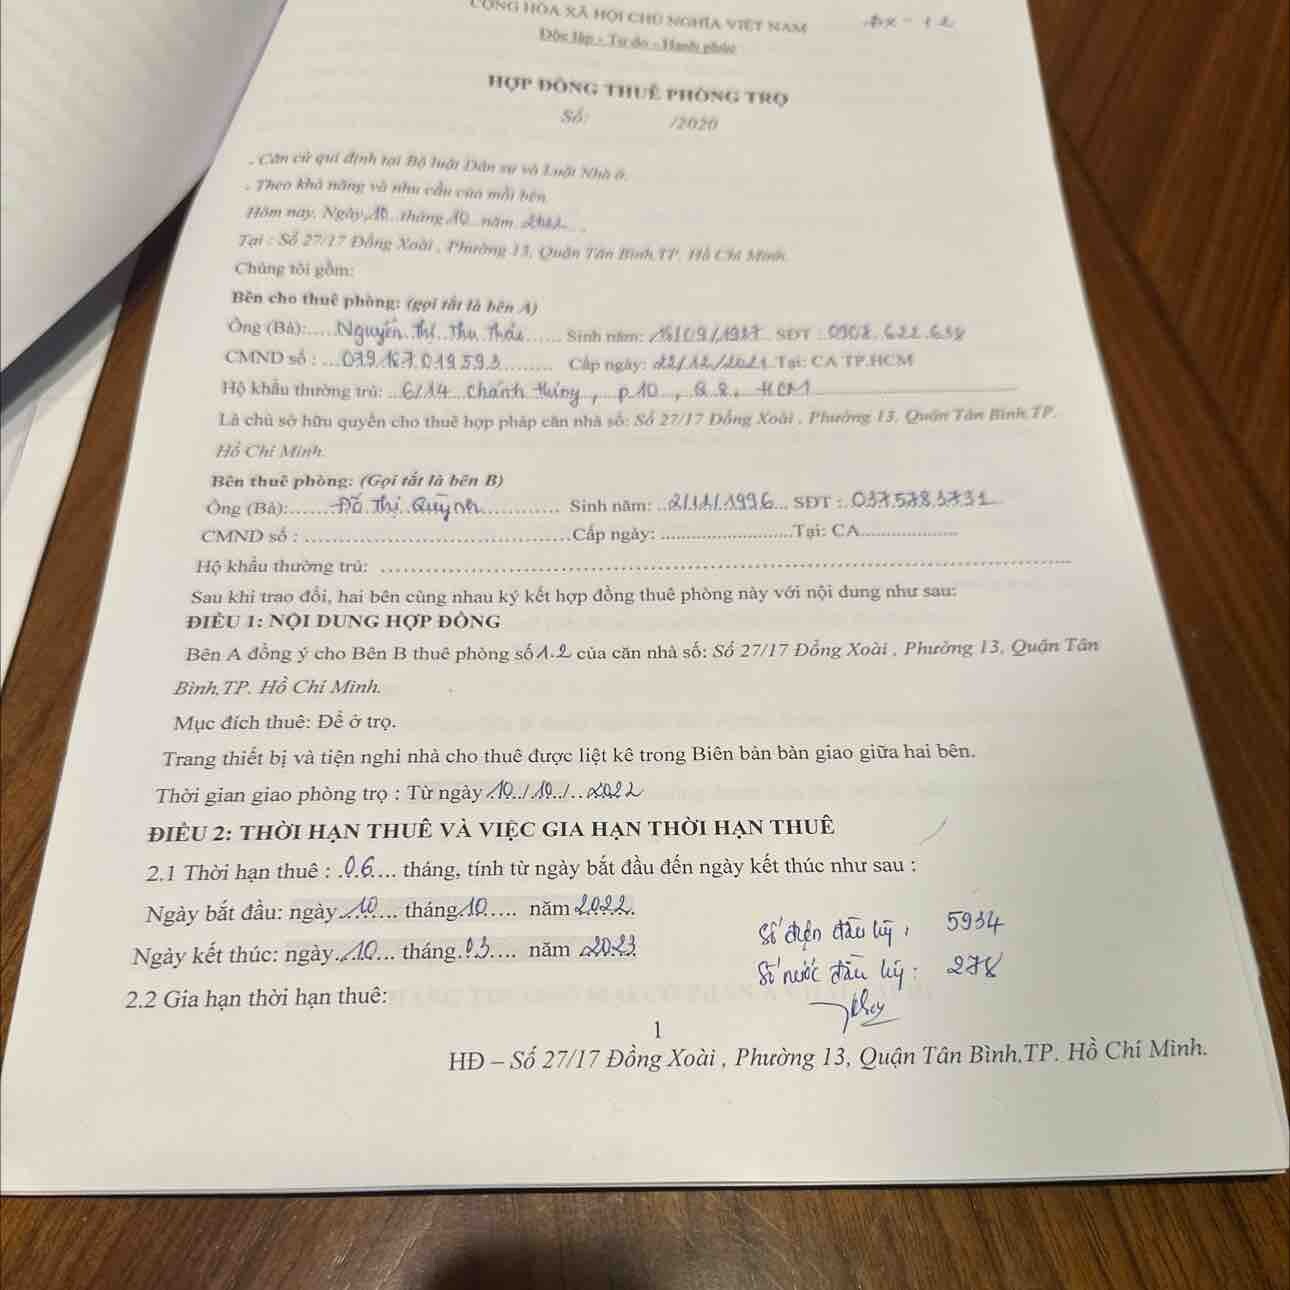 CỘNG HÒA XÃ HỘI CHỦ NGHĨA VIỆT NAM
Độc lập - Tự do - Hạnh phúc
HỢP ĐỒNG THUÊ PHÒNG TRỌ
Số: /2020
. Căn cứ qui định tại Bộ luật Dân sự và Luật Nhà ở.
. Theo khả năng và nhu cầu của mỗi bên.
Hôm nay, Ngày 10 tháng 10 năm 2022
Tại : Số 27/17 Đồng Xoài , Phường 13, Quận Tân Bình,TP. Hồ Chí Minh.
Chúng tôi gồm:
Bên cho thuê phòng: (gọi tắt là bên A)
Ông (Bà):.....Nguyễn Thị Thu Thảo...... Sinh năm: /09/1987 SĐT : 0908.622.638
CMND số : ...079.187.019593......... Cấp ngày: 22/12/2021 Tại: CA TP.HCM
Hộ khẩu thường trú: ...6/14 Chánh Hưng, p10, Q.8, HCM
Là chủ sở hữu quyền cho thuê hợp pháp căn nhà số: Số 27/17 Đồng Xoài , Phường 13, Quận Tân Bình,TP.
Hồ Chí Minh.
Bên thuê phòng: (Gọi tắt là bên B)
Ông (Bà):......Đỗ Thị Quỳnh............ Sinh năm: ..2/11/1996... SĐT : 0375783731
CMND số : ........................................Cấp ngày: ........................Tại: CA.................
Hộ khẩu thường trú: ........................................................................
Sau khi trao đổi, hai bên cùng nhau ký kết hợp đồng thuê phòng này với nội dung như sau:
ĐIỀU 1: NỘI DUNG HỢP ĐỒNG
Bên A đồng ý cho Bên B thuê phòng số 1.2 của căn nhà số: Số 27/17 Đồng Xoài , Phường 13, Quận Tân
Bình,TP. Hồ Chí Minh.
Mục đích thuê: Để ở trọ.
Trang thiết bị và tiện nghi nhà cho thuê được liệt kê trong Biên bản bàn giao giữa hai bên.
Thời gian giao phòng trọ : Từ ngày 10../.10../..2022
ĐIỀU 2: THỜI HẠN THUÊ VÀ VIỆC GIA HẠN THỜI HẠN THUÊ
2.1 Thời hạn thuê : .06.... tháng, tính từ ngày bắt đầu đến ngày kết thúc như sau :
Ngày bắt đầu: ngày..10.... tháng.10..... năm 2022.
Ngày kết thúc: ngày..10.... tháng.03.... năm 2023
Số điện đầu kỳ : 5934
Số nước đầu kỳ : 278
2.2 Gia hạn thời hạn thuê:
1
HĐ – Số 27/17 Đồng Xoài , Phường 13, Quận Tân Bình,TP. Hồ Chí Minh.